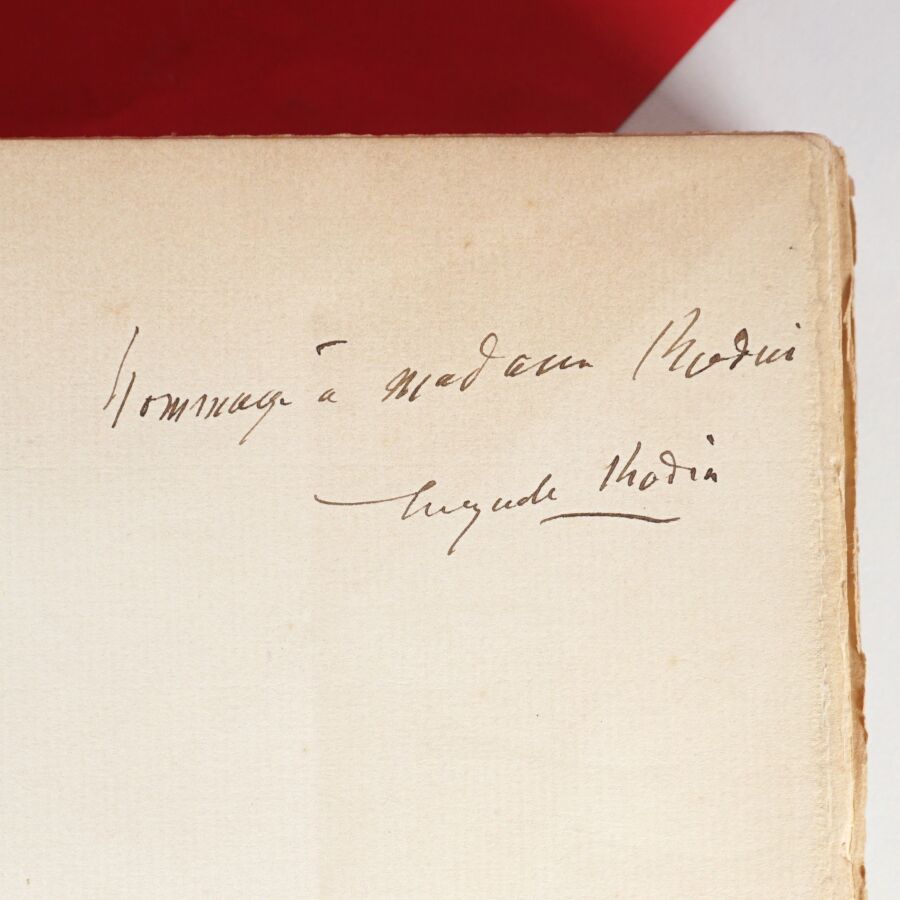 Hommage à madame
Auguste Rodin